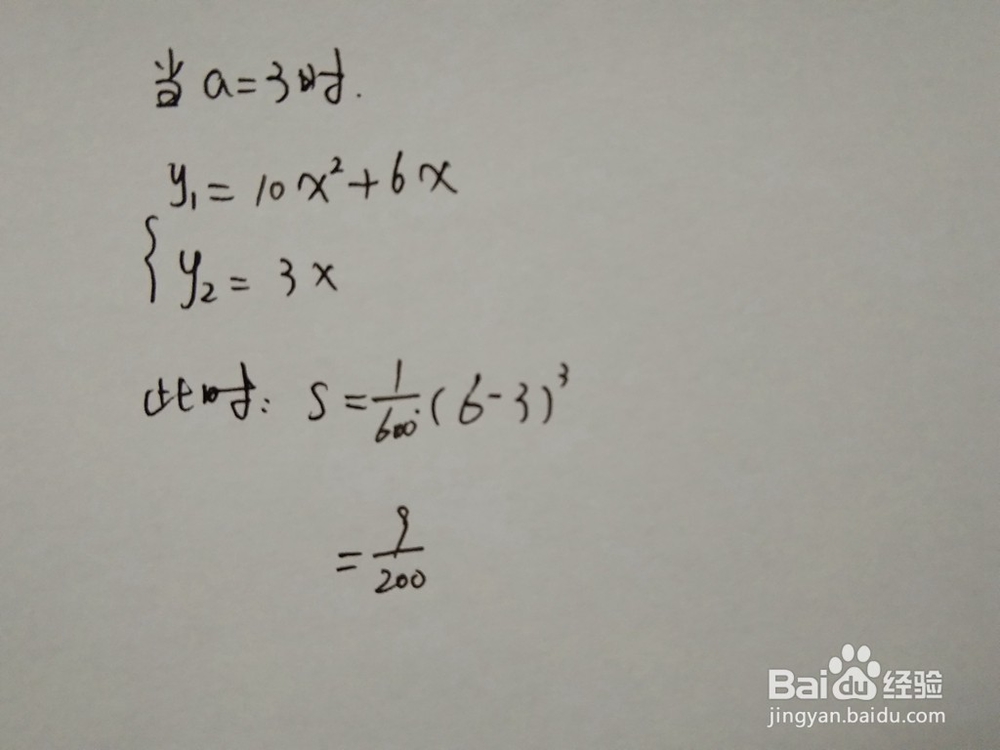 当 a=3时.
y₁ = 10x²+6x
{ y₂ = 3x
此时: S = 1/600 (6-3)³
= 9/200
Baidu经验
jingyan.baidu.com